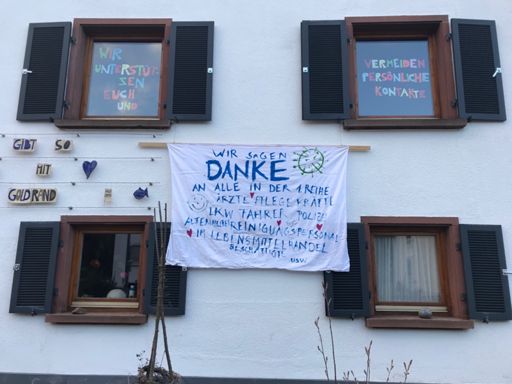 WIR
UNTERSTÜT-
ZEN
EUCH
UND
VERMEIDEN
PERSÖNLICHE
KONTAKTE
GIBT SO
MIT
GOLDRAND
WIR SAGEN
DANKE
AN ALLE IN DER 1. REIHE
ÄRZTE PFLEGEKRÄFTE
LKW FAHRER POLIZEI
REINIGUNGSPERSONAL
IM LEBENSMITTELHANDEL
BESCHÄFTIGTE
USW.